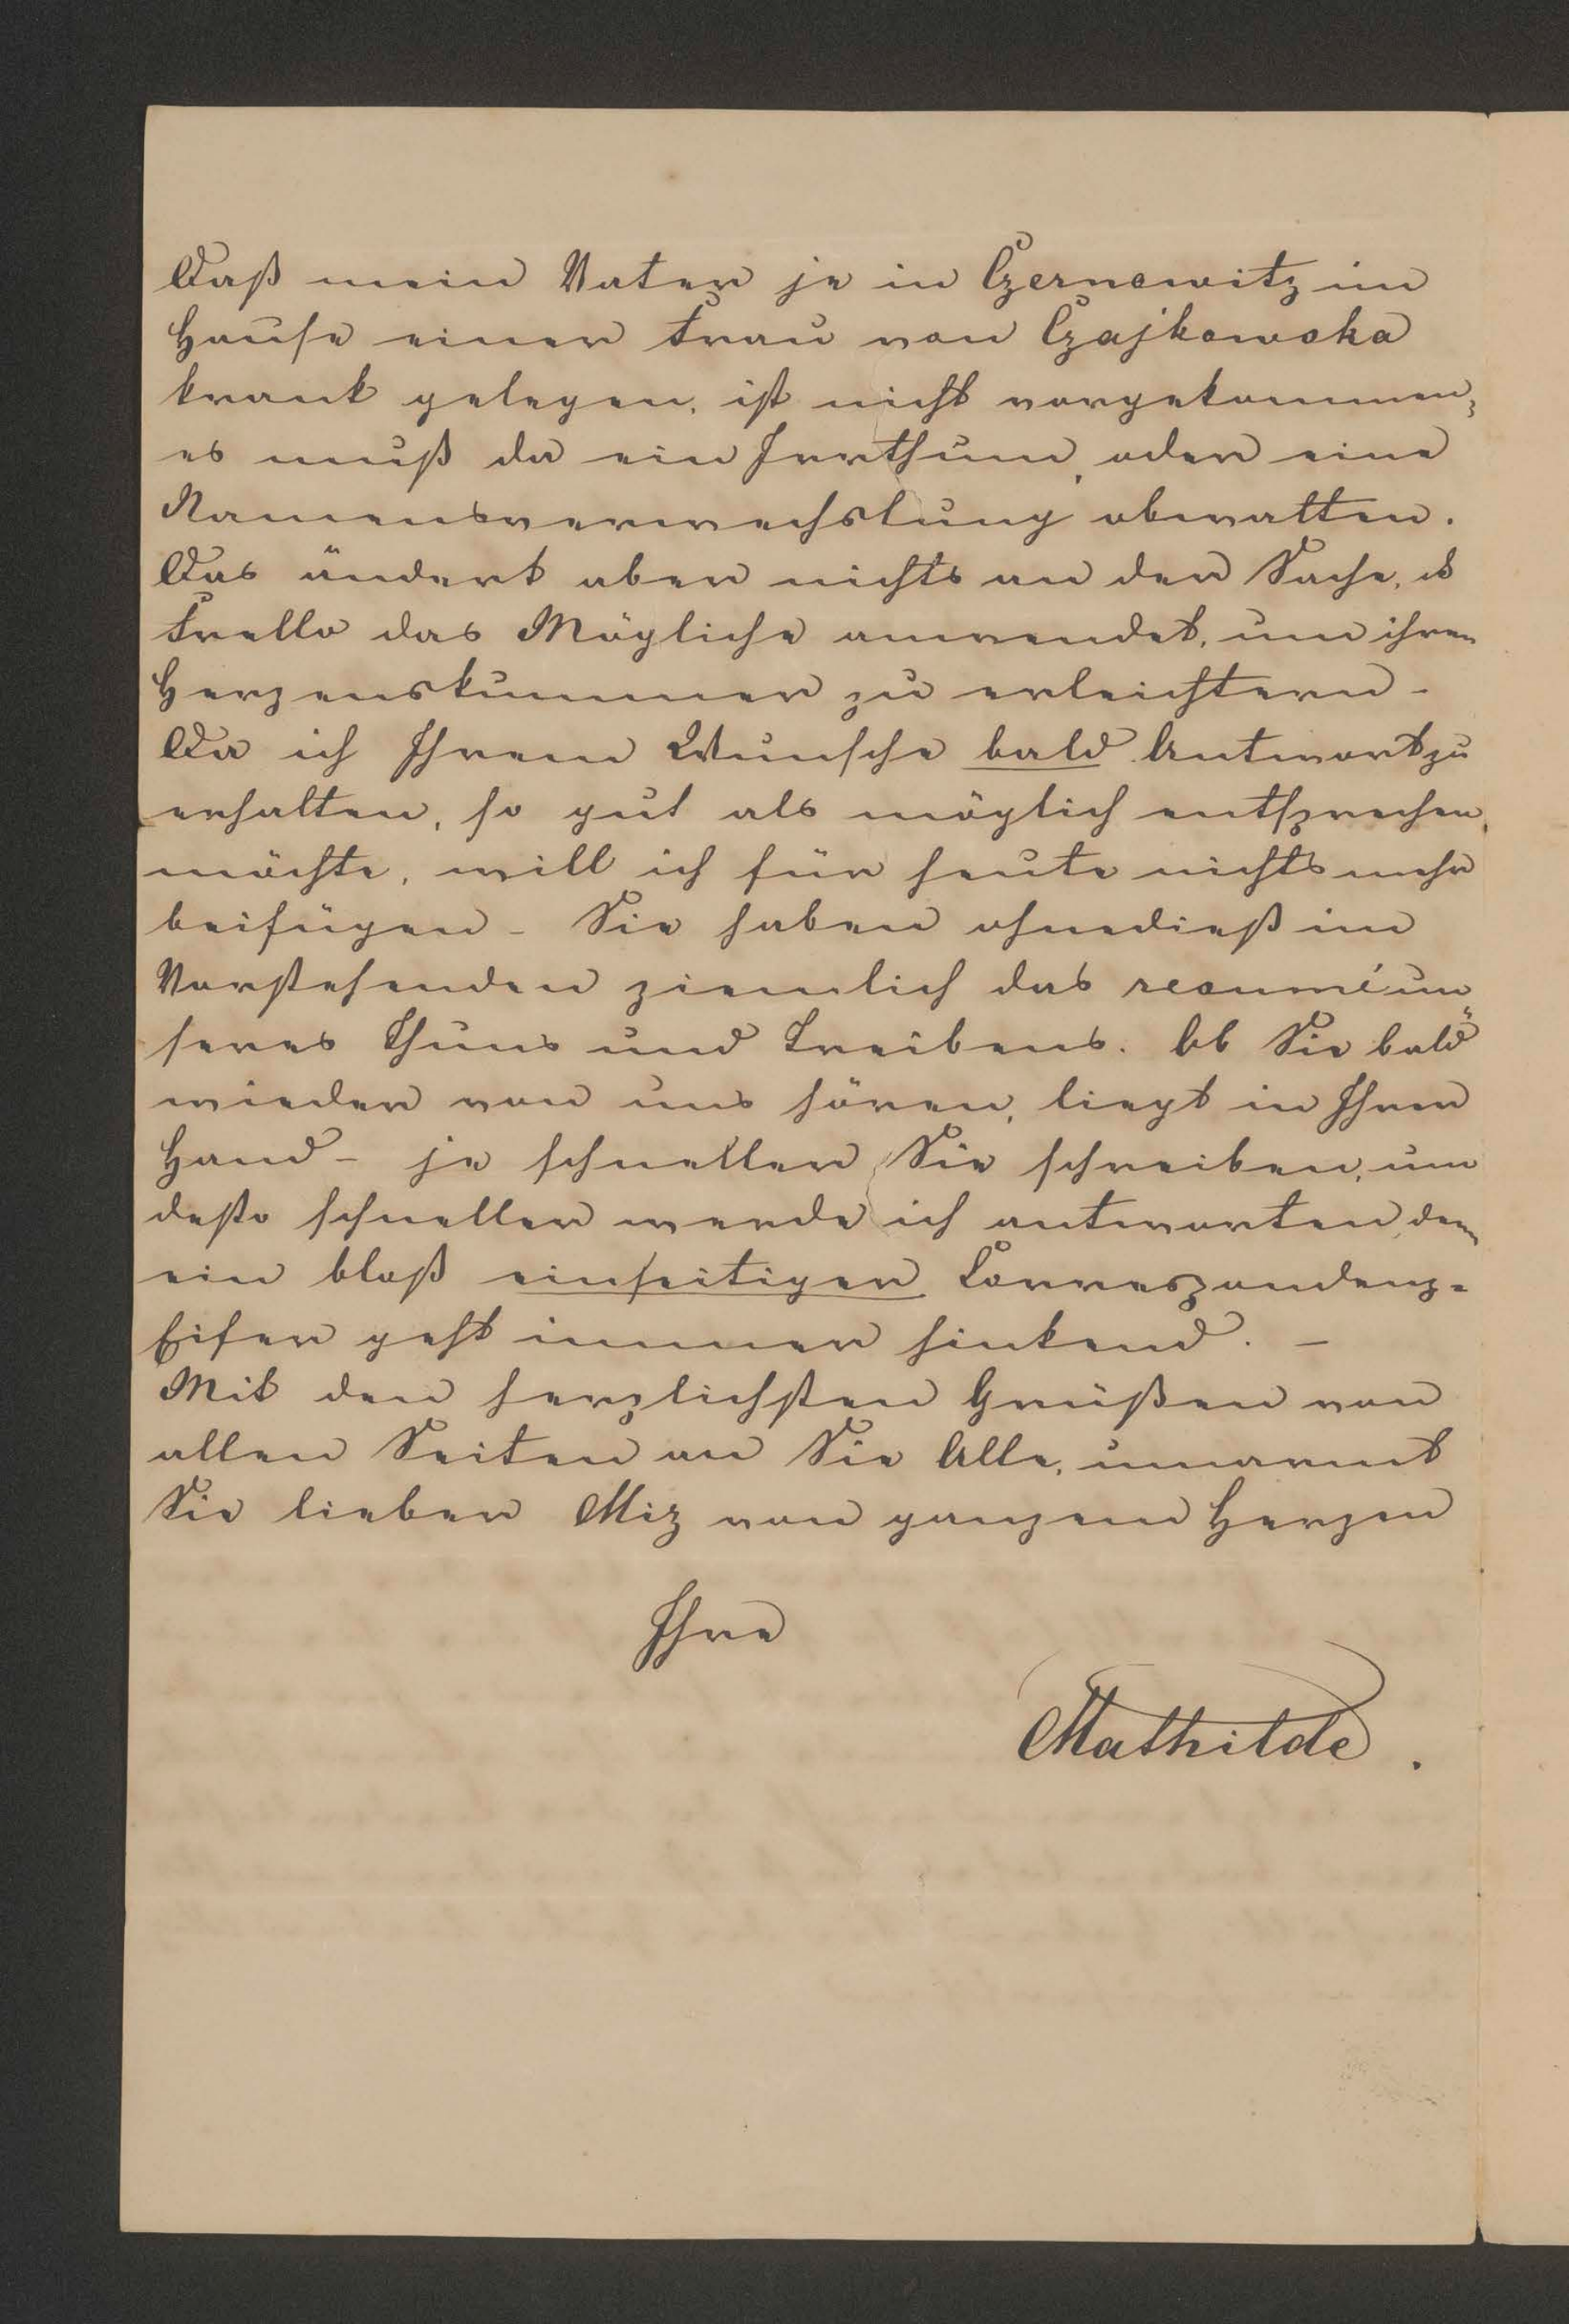 Daß mein Vater je in Czernowitz im
Hause einer Frau von Czajkowska
krank gelegen, ist nicht vorgekommen;
es muß da ein Irrthum, oder eine
Namensverwechslung obwalten.
Das ändert aber nichts an der Sache, 
Frello das Mögliche anwendet, um ihren
Herzenskummer zu erleichtern –
Da ich Ihrem Wunsche bald Antwort zu
erhalten, so gut als möglich entsprechen
möchte, will ich für heute nichts mehr
beifügen – Sie haben ohnedieß im
Vorstehenden ziemlich das resumé un„
seres Thuns und Treibens. Ob Sie bald
wieder von uns hören, liegt in Ihrer
Hand – je schneller Sie schreiben, um
desto schneller werde ich antworten, denn
ein bloß einseitiger Correspondenz-
Eifer geht immer hinkend. –
Mit den herzlichsten Grüßen von
allen Seiten an Sie Alle, umarmt
Sie lieber Miz von ganzem Herzen
Ihre
Mathilde.